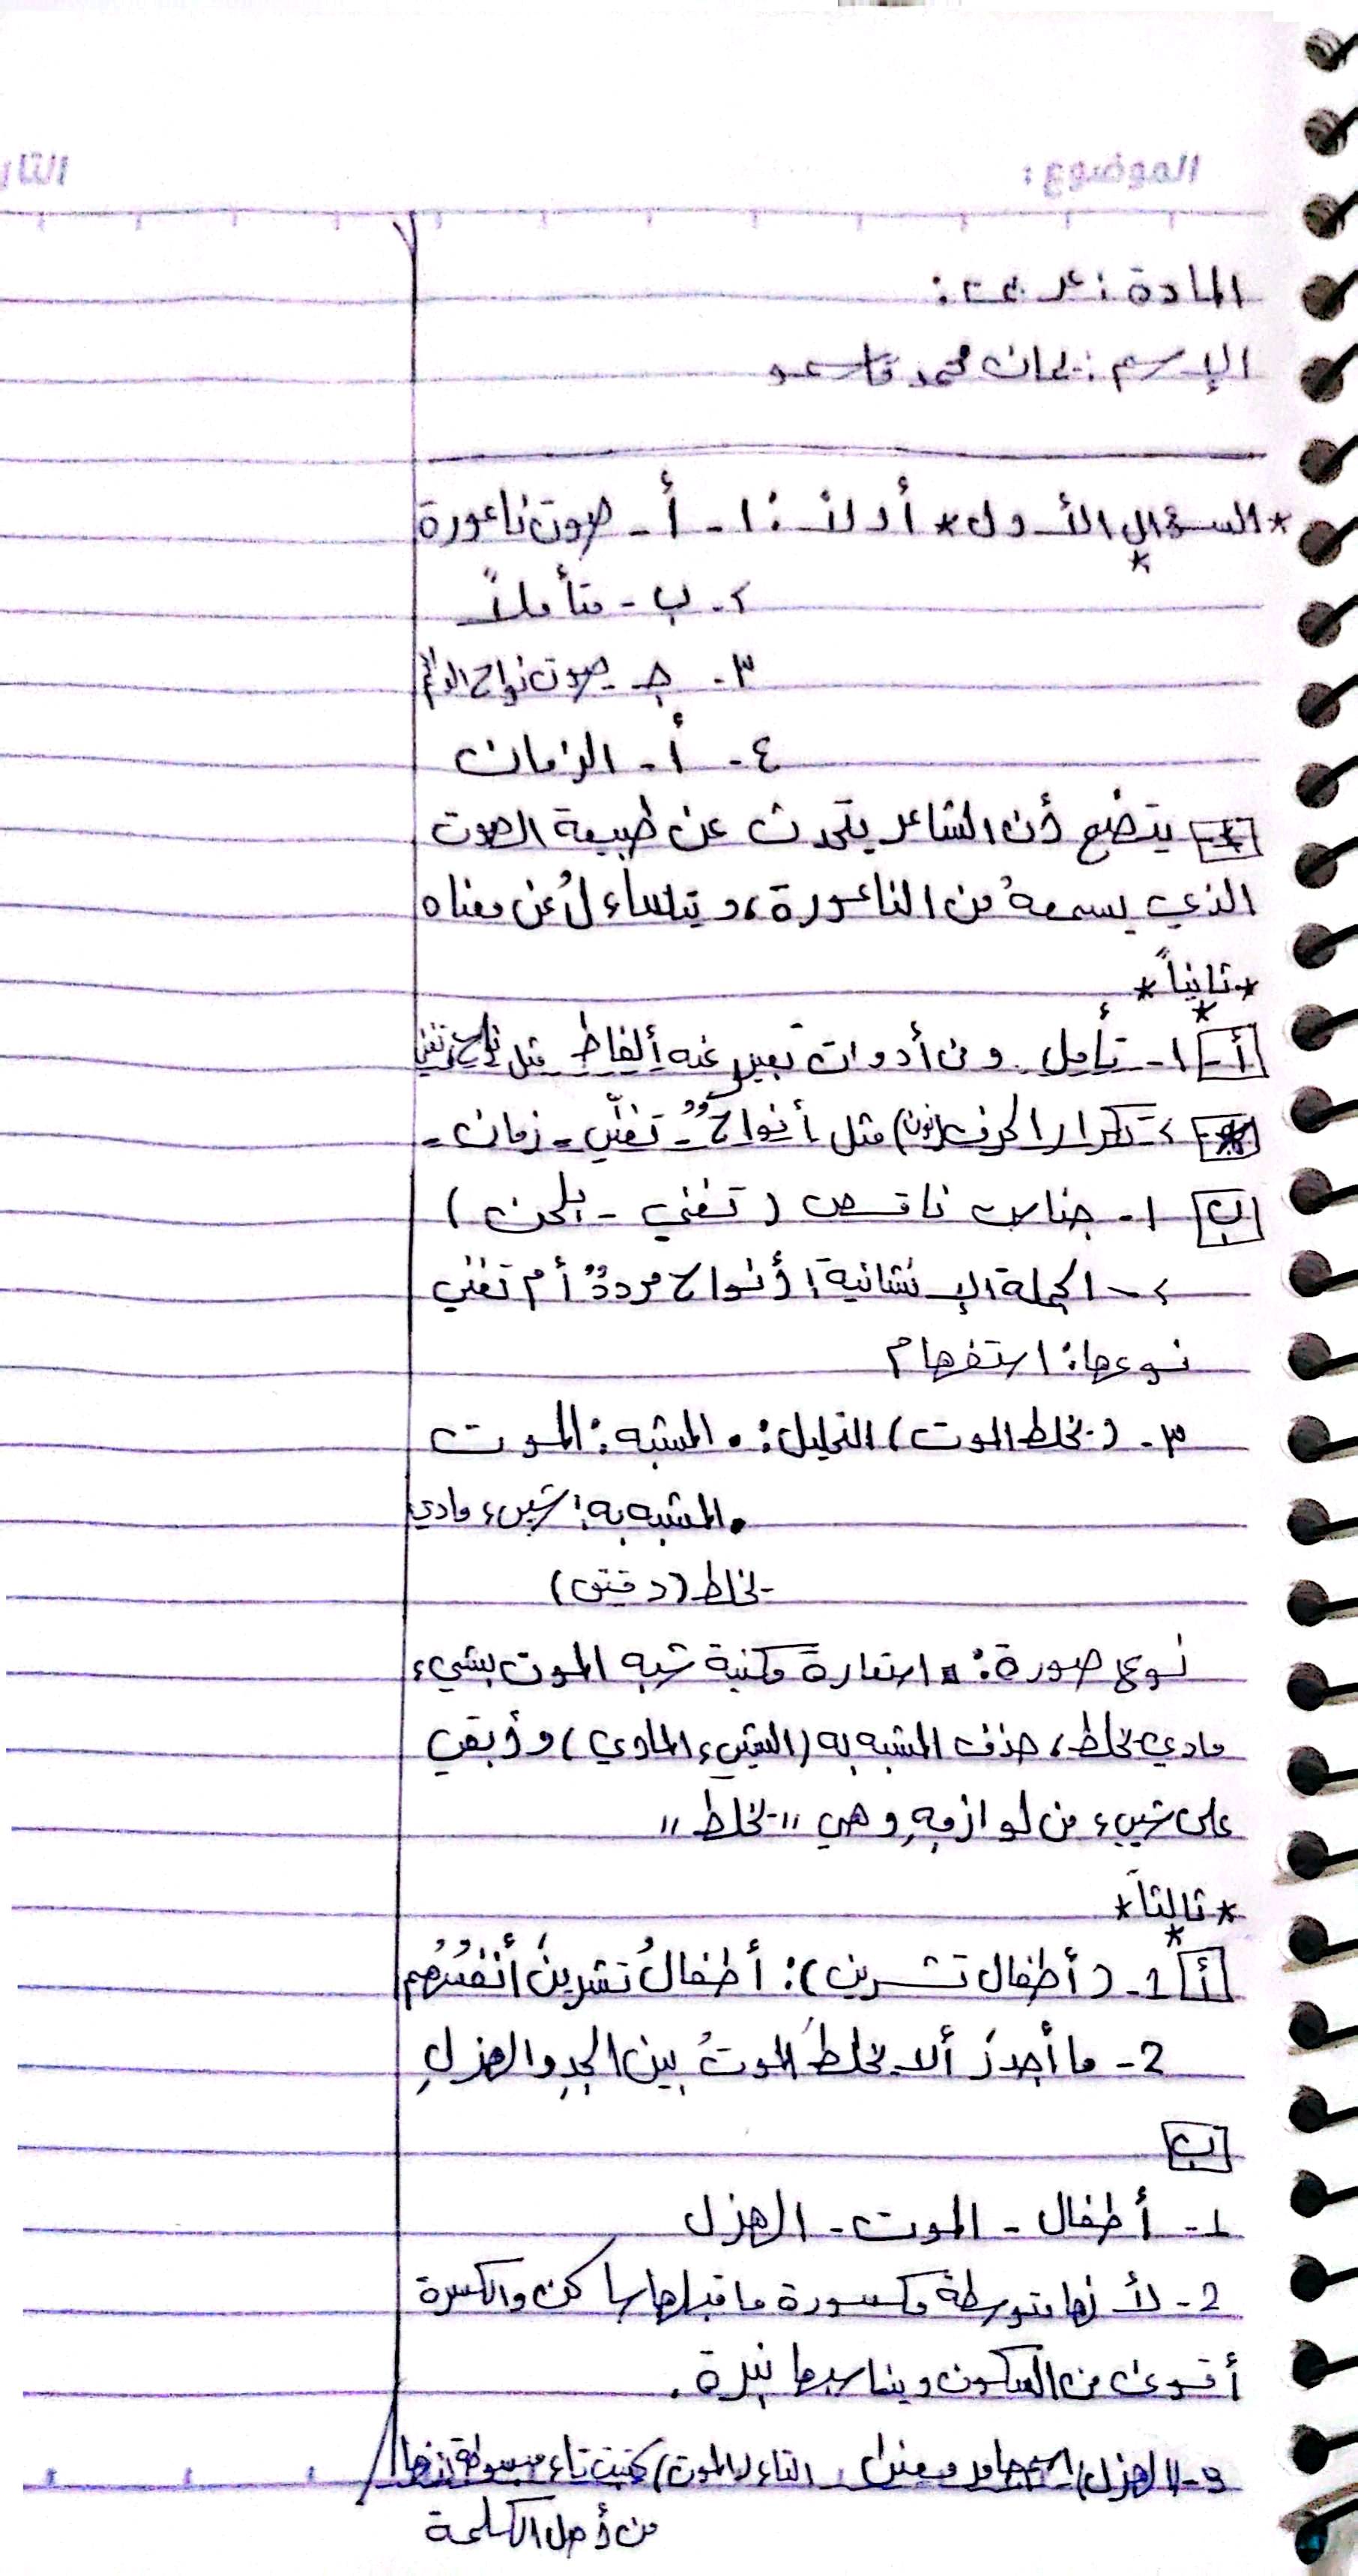 الموضوع:
التار
المادة: عربي:
الإسم: محمد
*السؤال الأول* أولاً: 1- أ- صوت ناعورة
٢- ب- متأملاً
٣- جـ- صوت نواح
٤- أ- الزمان
يتضح أن الشاعر يتحدث عن طبيعة الصوت
الذي يسمعهُ من الناعورة، و يتساءلُ عن معناه
*ثانياً*
أ- ١- تأمل. ومن أدوات تعبير عنه ألفاظ مثل
٢- تكرار الحرف (نون) مثل أنواحٌ - تغنّي - زمان -
ب ١- جناس ناقص (تغني - يلحن)
٢- الجملة الإنشائية: أنواح مرددٌ أم تغني
نوعها: استفهام
٣- (يخلط الموت) التحليل: • المشبه: الموت
• المشبه به: شيء مادي
يخلط (دقيق)
نوع صورة: استعارة مكنية شبه الموت بشيء
مادي يخلط، حذف المشبه به (الشيء المادي) وأبقى
على شيء من لوازمهِ وهي "يخلط"
*ثالثاً*
أ 1- (أطفال تشرين): أطفالُ تشرينَ أنفُسُهم
2- ما أجدرَ ألا يخلطَ الموتُ بين الجدِ والهزلِ
ب
1- أطفال - الموت - الهزل
2- لأنها متوسطة مكسورة ما قبلها ساكن والكسرة
أقوى من السكون ويناسبها نبرة.
3- (الهزل) اسم جامد معنى التاء (الموت) كتبت تاء مبسوطة لأنها
من أصل الكلمة